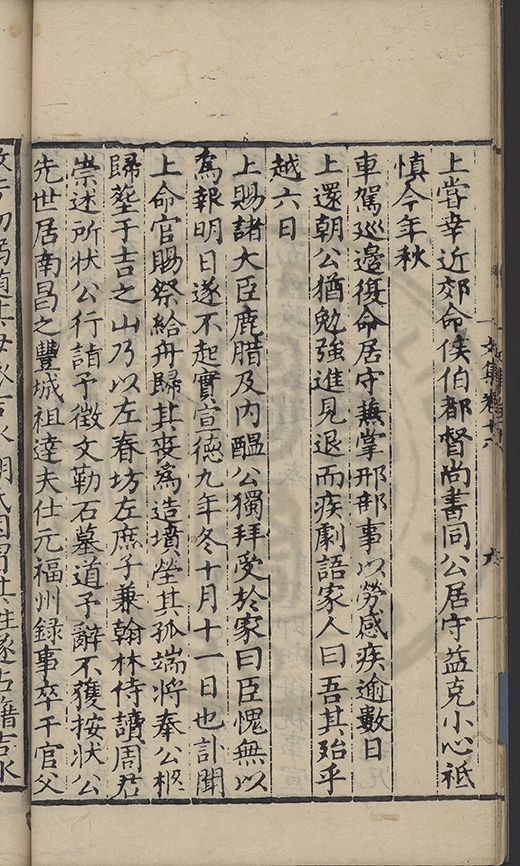 上嘗幸近郊命侯伯都督尚書同公居守益克小心祗
慎今年秋
車駕巡邊復命居守兼掌刑部事以勞感疾逾數日
上還朝公猶勉強進見退而疾劇語家人曰吾其殆乎
越六日
上賜諸大臣鹿腊及内醖公獨拜受於家曰臣愧無以
爲報明日遂不起實宣德九年冬十月十一日也訃聞
上命官賜祭給舟歸其喪爲造墳塋其孤端將奉公柩
歸塟于吉之山乃以左春坊左庶子兼翰林侍讀周君
崇述所狀公行詣予徵文勒石墓道予辭不獲按狀公
先世居南昌之豐城祖達夫仕元福州録事卒于官父